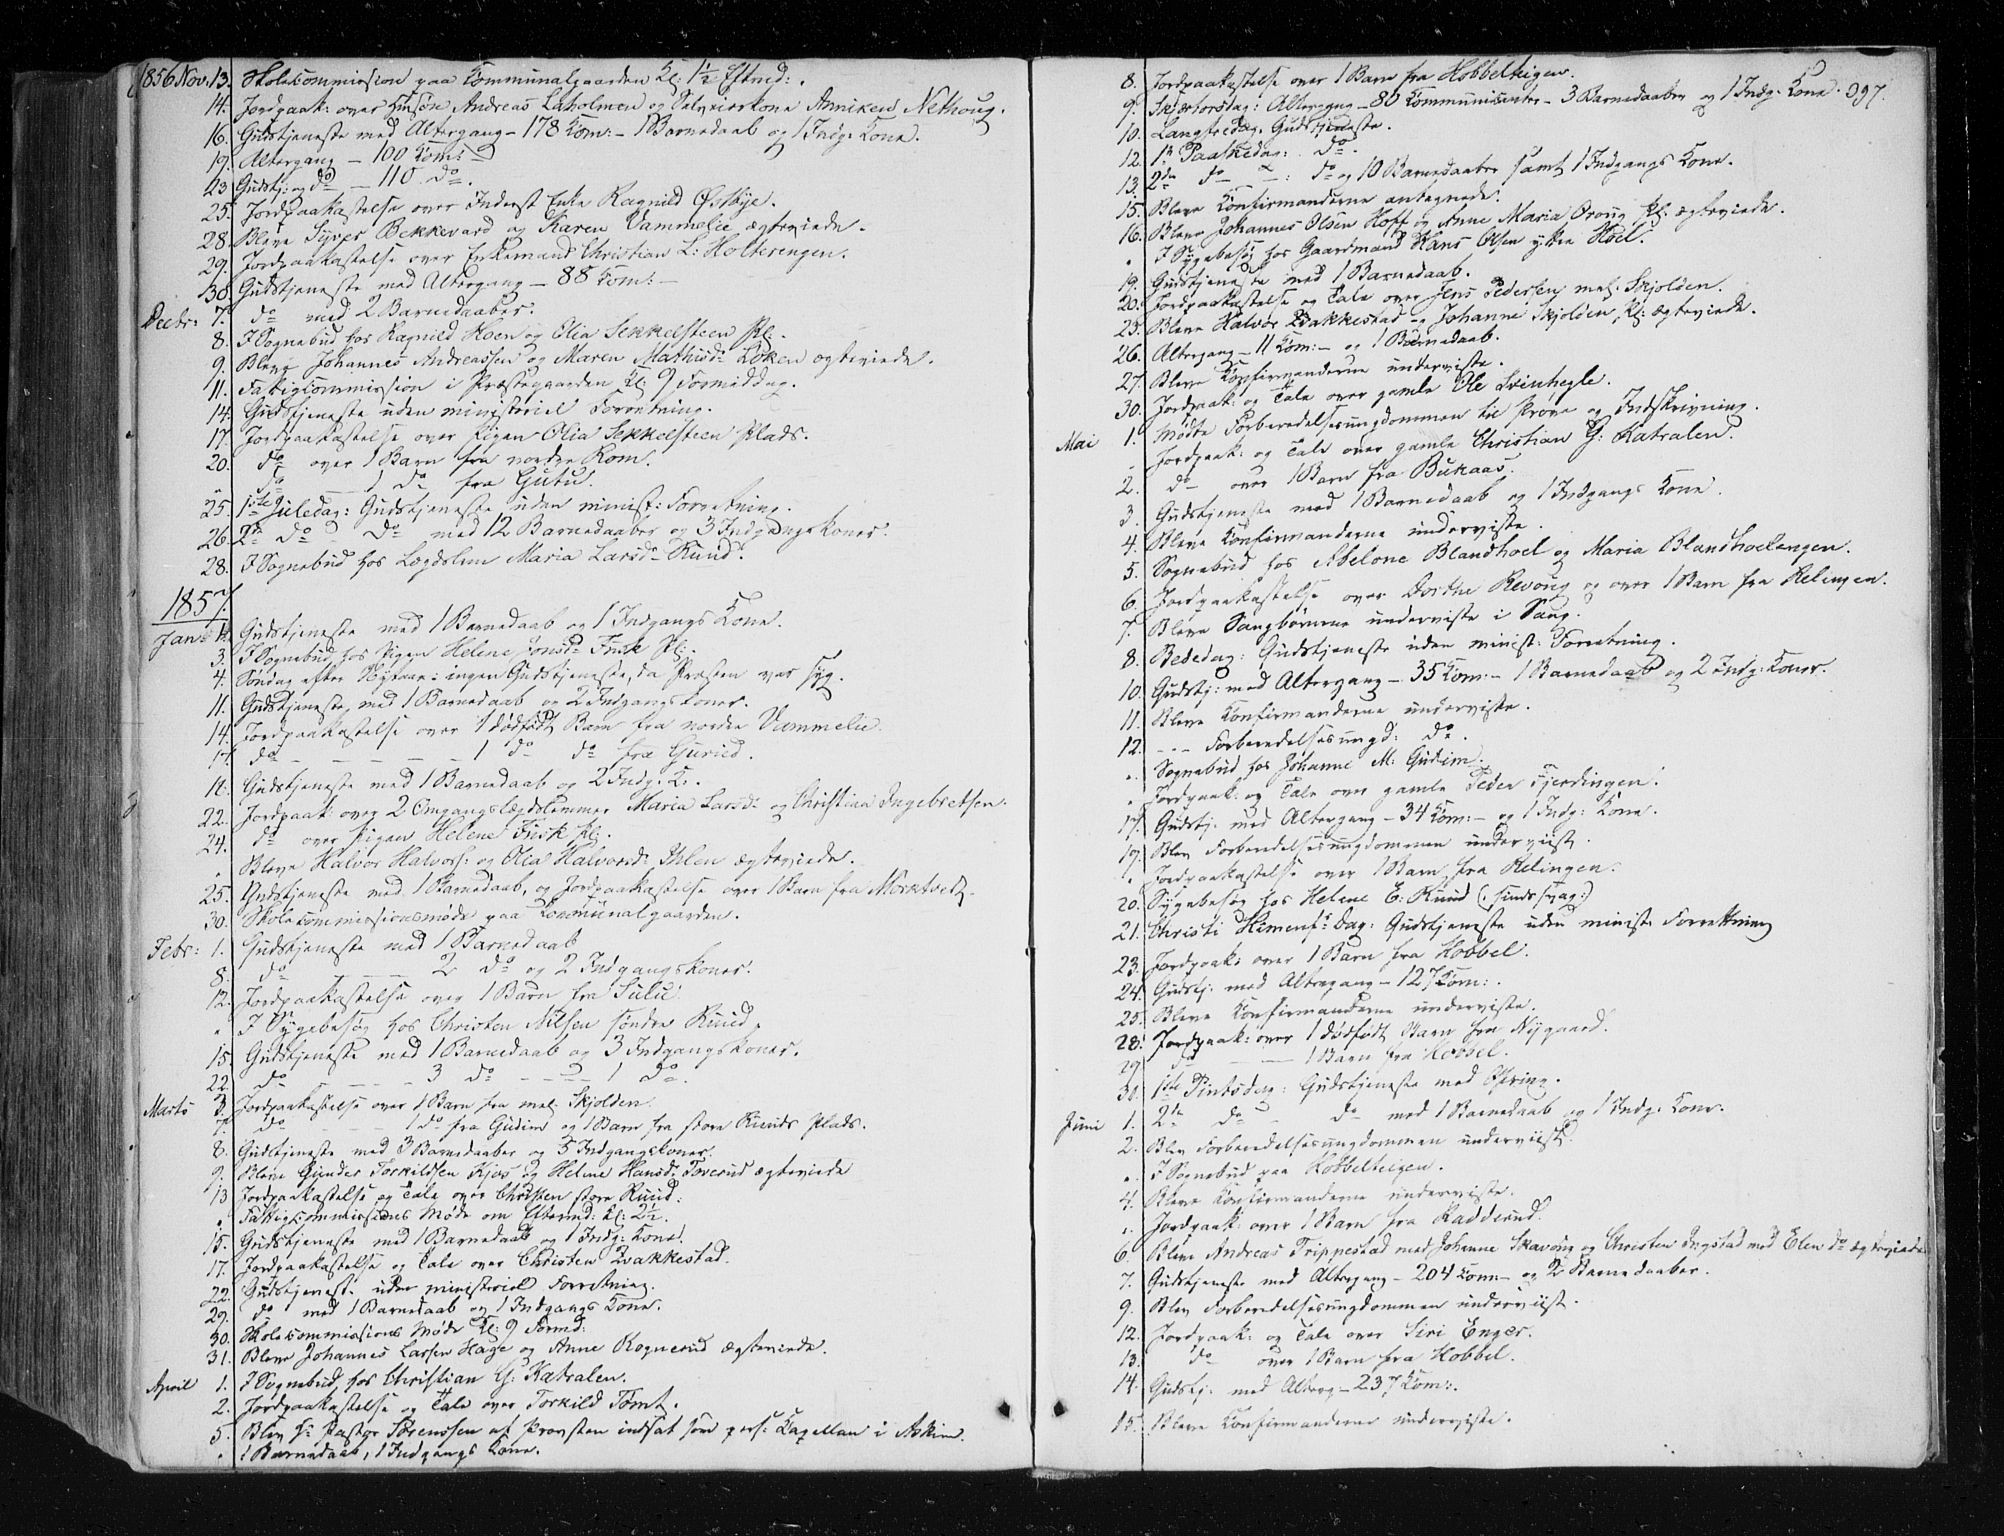 1856 Nov. 13. Skolecommission paa Communalgaarden Kl: 1½ Eftmd:.
14. Jordpaak: over Andreas Laholmen og Anniken Nethoug.
16. Gudstjeneste med Altergang – 178 Kom: – 1 Barnedaab og 1 Indg: Kone.
19. Altergang – 100 Kom: –
23. Gudstj: og do – 110 do.
25. Jordpaakastelse over Inderst Enke Ragnild Østbye.
28. Bleve Syver Bekkevard og Karen Vammelie ægteviede.
29. Jordpaakastelse over Enkemand Christian L: Holterengen.
30. Gudstjeneste med Altergang – 88 Kom: –
Decbr: 7. do med 2 Barnedaaber.
8. I Sognebud hos Ragnild Hoen og Olia Sekkelsteen Pl:.
9. Bleve Johannes Andreassen og Maren Mathisd: Løken ægteviede.
11. Fattigcommission i Præstegaarden Kl: 9 Formiddag.
14. Gudstjeneste uden ministeriel Forretning.
17. Jordpaakastelse over Pigen Olia Sekkelsteen Plads.
20. do over 1 Barn fra nordre Rom.
" do 1 do fra Gutu.
25. 1ste Juledag: Gudstjeneste uden minist: Forretning.
26. 2de do do med 12 Barnedaaber og 3 Indgangskoner.
28. I Sognebud hos Lægdslem Maria Larsd: Ruud.
1857.
Jan: 1. Gudstjeneste med 1 Barnedaab og 1 Indgangs Kone.
3. I Sognebud hos Pigen Helene Jonsd: Fusk Pl:.
4. Søndag efter Nytaar: ingen Gudstjeneste, da Præsten var syg.
11. Gudstjeneste med 1 Barnedaab og 2 Indgangskoner.
14. Jordpaakastelse over 1 dødfødt Barn fra nordre Vammelie.
17. do – – – 1 do do fra Guried.
18. Gudstjeneste med 1 Barnedaab og 2 Indg: K:.
22. Jordpaak: over 2 Omgangslægdslemmer Maria Larsd: og Christian Ingebretsen.
24. do over Pigen Helene Fusk Pl:.
" Bleve Halvor Halvors: og Olia Halvorsd: Ihlen ægteviede.
25. Gudstjeneste med 1 Barnedaab, og Jordpaakastelse over 1 Barn fra Morktvedt.
30. Skolecommissionsmøde paa Kommunalgaarden.
Febr: 1. Gudstjeneste med 1 Barnedaab
8. do – – – 2 do og 2 Indgangskoner.
12. Jordpaakastelse over 1 Barn fra Sulu.
" I Sygebesøg hos Christen Nilsen søndre Ruud.
15. Gudstjeneste med 1 Barnedaab og 3 Indgangskoner.
22. do – – – 3 do – – 1 do.
Marts 3. Jordpaakastelse over 1 Barn fra mel: Skjolden.
7. do – – 1 do fra Gudim og 1 Barn fra store Ruuds Plads.
8. Gudstjeneste med 3 Barnedaaber og 5 Indgangskoner.
9. Bleve Gunder Torkildsen Kjos og Helene Hansd: Toverud ægteviede
13 Jordpaakastelse og Tale over Christen store Ruud.
" Fattigcommissions Møde om Eftermd: Kl: 2½.
15. Gudstjeneste med 1 Barnedaab og 1 Indg: Kone.
17. Jordpaakastelse og Tale over Christen Vakkestad.
22. Gudstjeneste uden ministeriel Forretning.
29. do med 1 Barnedaab og 1 Indgangs Kone.
30. Skolecommissions Møde Kl: 9 Formd:
31. Bleve Johannes Larsen Hage og Anne Rognerud ægteviede.
April 1. I Sognebud hos Christian G: Katralen.
2. Jordpaakastelse og Tale over Torkild Tømt.
5. Blev Hr Pastor Sørenssen af Provsten indsat som pers: Kapellan i Askim.
" 1 Barnedaab, 1 Indgangs Kone.
8. Jordpaakastelse over 1 Barn fra Hobbelteigen.
9. Skjærtorsdag: Altergang – 80 Kommunicanter – 3 Barnedaaber og 1 Indg: Kone. 397.
10. Langfredag. Gudstjeneste.
12. 1ste Paaskedag: do.
13. 2den do – : do og 10 Barnedaaber samt 1 Indgangs Kone.
15. Bleve Konfirmanderne antegnede.
16. Bleve Johannes Olsen Hoff og Anne Maria Oroug Pl: ægteviede.
" I Sygebesøg hos Gaardmand Hans Olsen ytre Hoel.
19. Gudstjeneste med 1 Barnedaab.
20. Jordpaakastelse og Tale over Jens Pedersen mel: Skjolden.
23. Bleve Halvor Vakkestad og Johanne Skjolden, Pl: ægteviede.
26. Altergang – 11 Kom: – og 1 Barnedaab.
27. Bleve Konfirmanderne underviste.
30. Jordpaak: og Tale over gamle Ole Svinhegle.
Mai 1. Mødte Forberedelsesungdommen til Prøve og Indskrivning.
" Jordpaak: og Tale over gamle Christian G: Katralen.
2. do over 1 Barn fra Bukaas.
3. Gudstjeneste med 1 Barnedaab og 1 Indgangs Kone.
4. Bleve Konfirmanderne underviste.
5. Sognebud hos Abelone Blandhoel og Maria Blandhoelengen.
6. Jordpaakastelse over Dorthe Revoug og over 1 Barn fra Relingen.
7. Bleve Sangbørnene underviste i Sang.
8. Bededag: Gudstjeneste uden minist: Forretning.
10. Gudstj: med Altergang – 35 Kom: – 1 Barnedaab og 2 Indg: Koner.
11. Bleve Konfirmanderne underviste.
12. – – – Forberedelsesungd: do.
" Sognebud hos Johanne M: Gudim.
" Jordpaak: og Tale over gamle Peder Fjerdingen.
17. Gudstj. med Altergang – 34 Kom: – og 1 Indg: Kone.
19. Blev Forberedelsesungdommen underviist.
" Jordpaakastelse over 1 Barn fra Relingen.
20. Sygebesøg hos Helene E: Ruud (: sindssvag:)
21. Christi Himmelf: Dag: Gudstjeneste uden minist: Forretning
23. Jordpaak: over 1 Barn fra Hobbel.
24. Gudstj. med Altergang – 127 Kom:.
25. Bleve Konfirmanderne underviste.
28. Jordpaak: over 1 dødfødt Barn fra Nygaard.
29. do – – – 1 Barn fra Hobbel.
31. 1ste Pintsdag: Gudstjeneste med Ofring.
Juni 1. 2den do – do med 1 Barnedaab og 1 Indg: Kone.
2. Blev Forberedelsesungdommen underviist.
" I Sognebud paa Hobbelteigen.
4. Bleve Konfirmanderne underviste.
" Jordpaak: over 1 Barn fra Radderud.
6. Bleve Andreas Trippestad med Johanne Skavoug og Christen Ingstad med Elen do ægteviede
7. Gudstjeneste med Altergang – 204 Kom: – og 2 Barnedaaber.
9. Blev Forberedelsesungdommen underviist.
12. Jordpaak: og Tale over Siri Enger.
13. do over 1 Barn fra Hobbel.
14. Gudstj. med Alterg – 237 Kom:.
15. Bleve Konfirmanderne underviste.